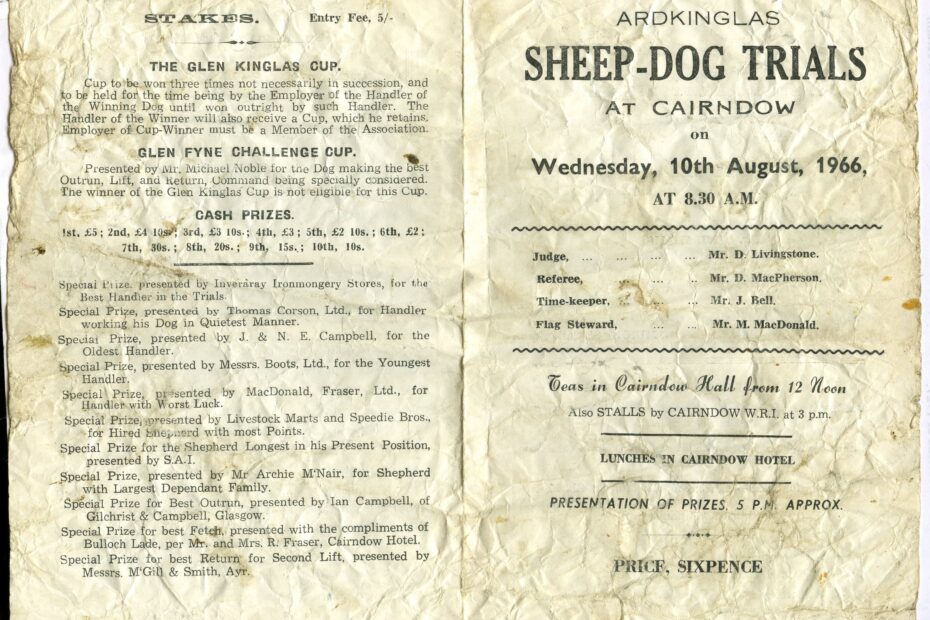 STAKES. Entry Fee, 5/-
THE GLEN KINGLAS CUP.
Cup to be won three times not necessarily in succession, and
to be held for the time being by the Employer of the Handler of
the Winning Dog until won outright by such Handler. The
Handler of the Winner will also receive a Cup, which he retains.
Employer of Cup-Winner must be a Member of the Association.
GLEN FYNE CHALLENGE CUP.
Presented by Mr. Michael Noble for the Dog making the best
Outrun, Lift, and Return, Command being specially considered.
The winner of the Glen Kinglas Cup is not eligible for this Cup.
CASH PRIZES.
1st, £5; 2nd, £4 10s.; 3rd, £3 10s.; 4th, £3; 5th, £2 10s.; 6th, £2;
7th, 30s.; 8th, 20s.; 9th, 15s.; 10th, 10s.
Special Prize, presented by Inveraray Ironmongery Stores, for the
Best Handler in the Trials.
Special Prize, presented by Thomas Corson, Ltd., for Handler
working his Dog in Quietest Manner.
Special Prize, presented by J. & N. E. Campbell, for the
Oldest Handler.
Special Prize, presented by Messrs. Boots, Ltd., for the Youngest
Handler.
Special Prize, presented by MacDonald, Fraser, Ltd., for
Handler with Worst Luck.
Special Prize, presented by Livestock Marts and Speedie Bros.,
for Hired Shepherd with most Points.
Special Prize for the Shepherd Longest in his Present Position,
presented by S.A.I.
Special Prize, presented by Mr Archie M'Nair, for Shepherd
with Largest Dependant Family.
Special Prize for Best Outrun, presented by Ian Campbell, of
Gilchrist & Campbell, Glasgow.
Special Prize for best Fetch, presented with the compliments of
Bulloch Lade, per Mr. and Mrs. R. Fraser, Cairndow Hotel.
Special Prize for best Return for Second Lift, presented by
Messrs. M'Gill & Smith, Ayr.
ARDKINGLAS
SHEEP-DOG TRIALS
AT CAIRNDOW
on
Wednesday, 10th August, 1966,
AT 8.30 A.M.
Judge, ... ... ... ... Mr. D. Livingstone.
Referee, ... ... .. Mr. D. MacPherson.
Time-keeper, ... ... Mr. J. Bell.
Flag Steward, ... ... Mr. M. MacDonald.
Teas in Cairndow Hall from 12 Noon
Also STALLS by CAIRNDOW W.R.I. at 3 p.m.
LUNCHES IN CAIRNDOW HOTEL
PRESENTATION OF PRIZES, 5 P.M. APPROX.
PRICE, SIXPENCE